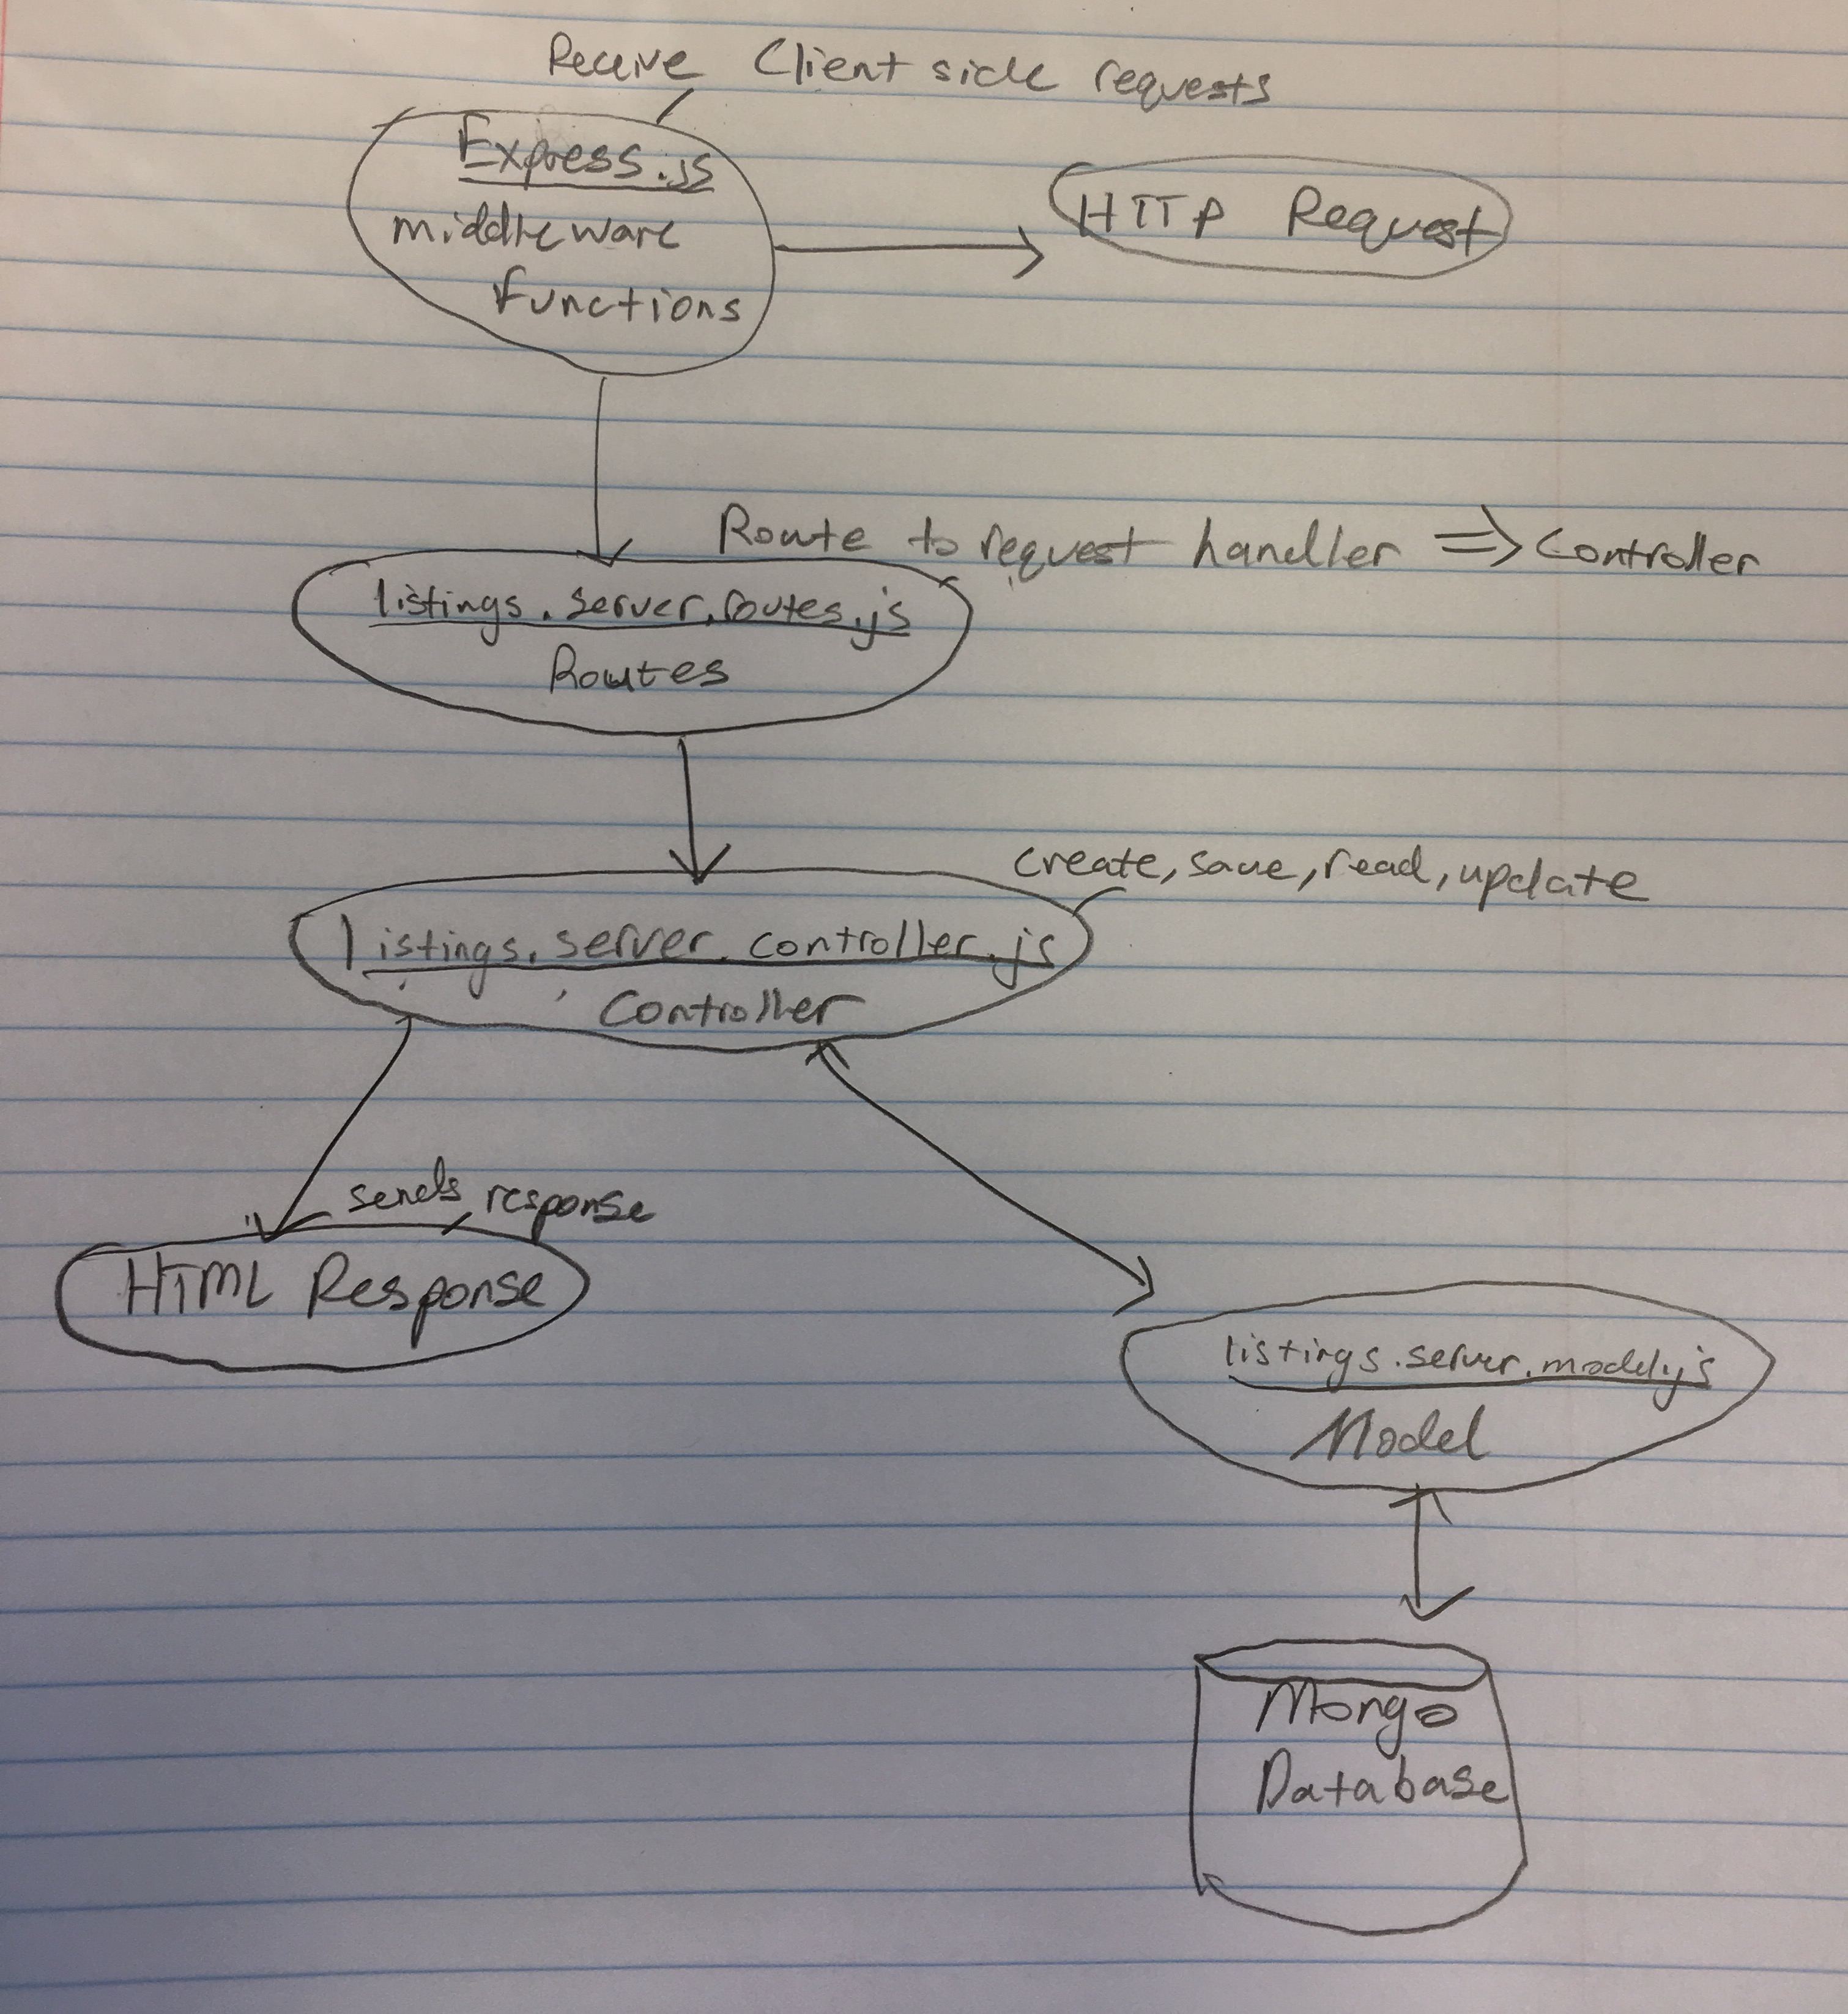 Receive Client side requests
Express.js
middleware
functions
HTTP Request
Route to request handler => Controller
listings.server.routes.js
Routes
create, save, read, update
listings.server.controller.js
Controller
sends response
HTML Response
listings.server.model.js
Model
Mongo
Database